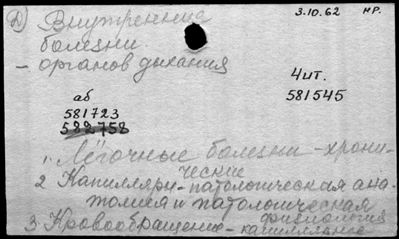 Д) Внутренние
3.10.62 НР.
болезни
- органов дыхания
4 шт.
аб
581545
581723
582758
1. Лёгочные болезни - хрони-
ческие
2 Капилляры - патологическая ана-
томия и патологическая
физиология
3. Кровообращение - капиллярное